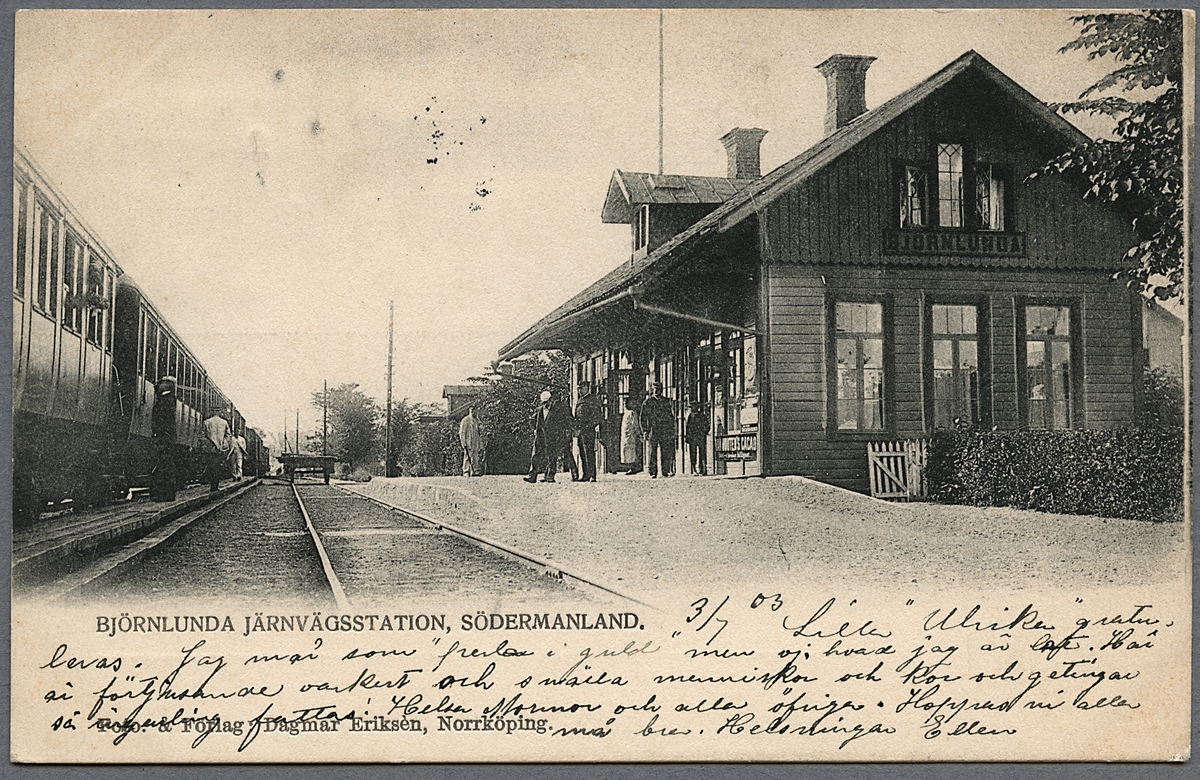 BJÖRNLUNDA
HOUTEN'S CACAO
BJÖRNLUNDA JÄRNVÄGSSTATION, SÖDERMANLAND.
3/7 03 Lilla "Ulrika" gratu-
leras. Jag mår som "perla i guld" men oj, hvad jag är lat. Här
är förtjusande vackert och snälla menniskor och kor och getingar
så ingenting fattas! Helsa Mormor och alla öfriga. Hoppas ni alla
må bra. Helsningar Ellen
Foto. & Förlag: Dagmar Eriksén, Norrköping.